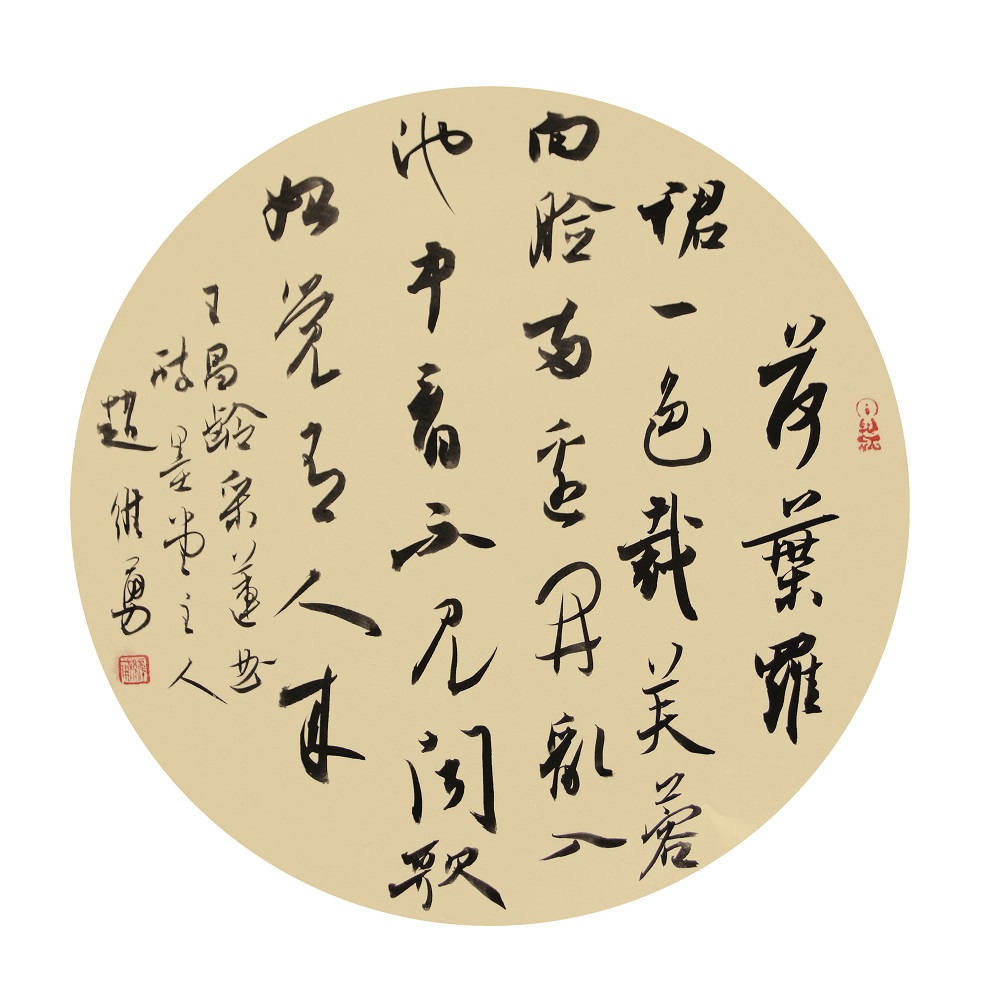 荷葉羅
裙一色裁芙蓉
向臉两邊開亂入
池中看不見聞歌
始覺有人来
王昌齡采蓮曲
醉墨堂主人
趙維勇